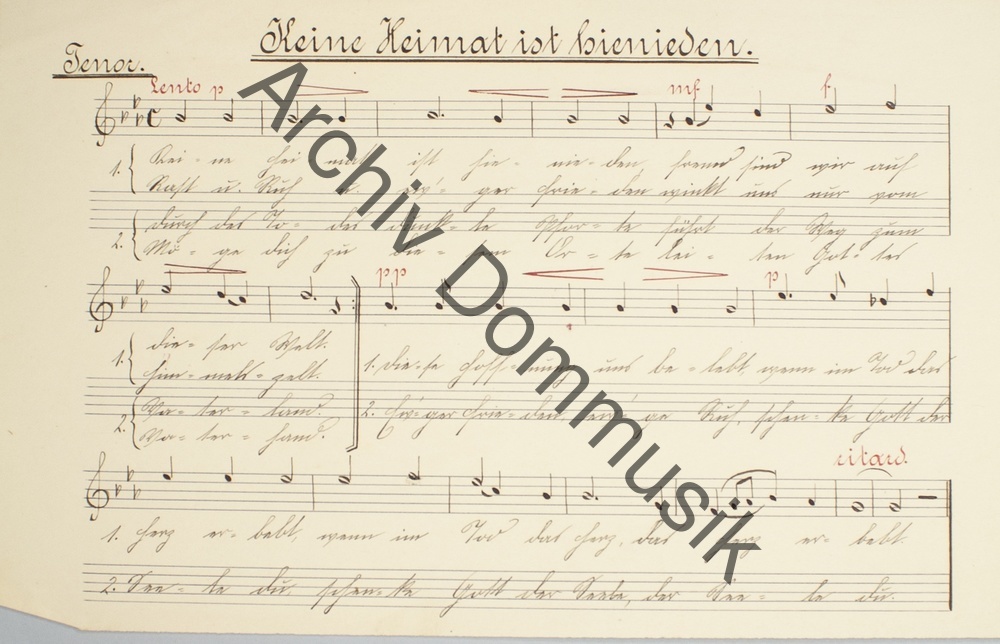 Keine Heimat ist hienieden.
Tenor.
Lento p mf f
1. Kei - ne Hei - mat ist hie - nie - den, fremd sind wir auf
Rast u. Ruh u. ew' - ger Frie - den winkt uns nur vom
2. durch des To - des dunk - le Pfor - te führt der Weg zum
Mö - ge dich zu die - sem Or - te lei - ten Got - tes
pp p
1. die - ser Welt.
him - mels - zelt.
1. Die - se Hoff - nung uns be - lebt, wenn im Tod das
2. Va - ter - land.
Va - ter - hand.
2. Ew' - ger Frie - den, ew' - ge Ruh, schen - ke Gott der
ritard.
1. Herz er - bebt, wenn im Tod das Herz, das Herz er - bebt.
2. See - le du, schen - ke Gott der Seele, der See - le du.
Archiv Dommusik